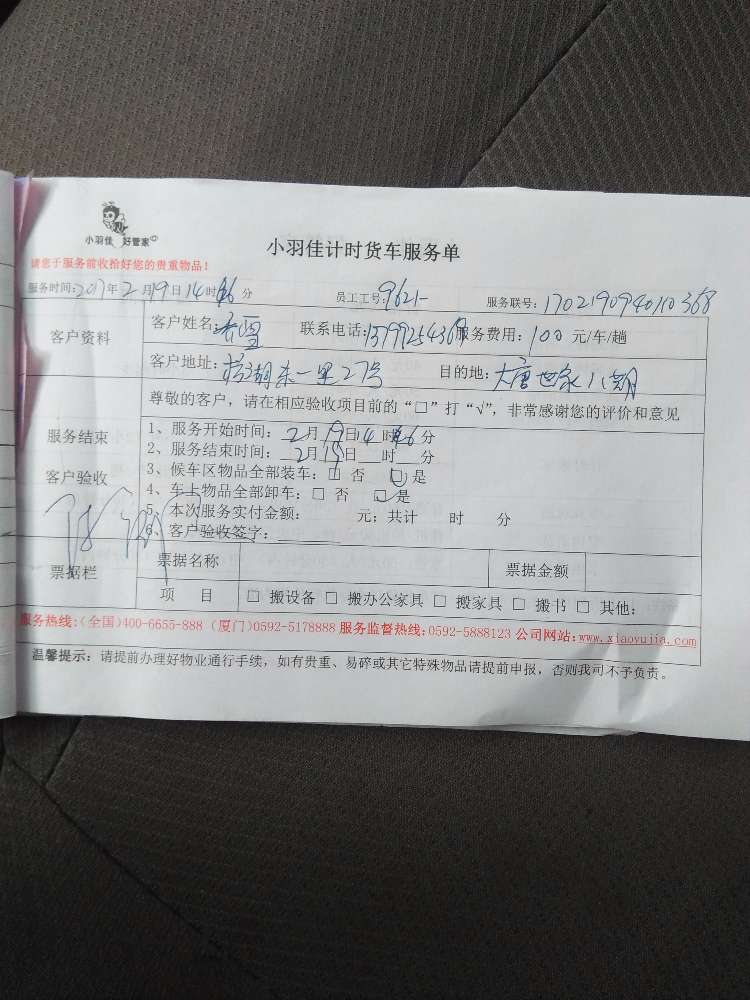 小羽佳 好管家
小羽佳计时货车服务单
请您于服务前收拾好您的贵重物品！
服务时间:2017年2月19日14时 分 员工工号:9621 服务联号:170219094010368
客户资料
客户姓名: 联系电话: 服务费用: 100 元/车/趟
客户地址: 东一里27号 目的地: 大唐世家八期
尊敬的客户，请在相应验收项目前的“□”打“√”，非常感谢您的评价和意见
服务结束
客户验收
1、服务开始时间: 2月19日14时 分
2、服务结束时间: 2月19日 时 分
3、候车区物品全部装车: □ 否 □ 是
4、车上物品全部卸车: □ 否 □ 是
5、本次服务实付金额: 元; 共计 时 分
6、客户验收签字:
票据栏
票据名称 票据金额
项 目 □ 搬设备 □ 搬办公家具 □ 搬家具 □ 搬书 □ 其他:
服务热线:(全国)400-6655-888 (厦门)0592-5178888 服务监督热线:0592-5888123 公司网站:www.xiaoyujia.com
温馨提示: 请提前办理好物业通行手续，如有贵重、易碎或其它特殊物品请提前申报，否则我司不予负责。